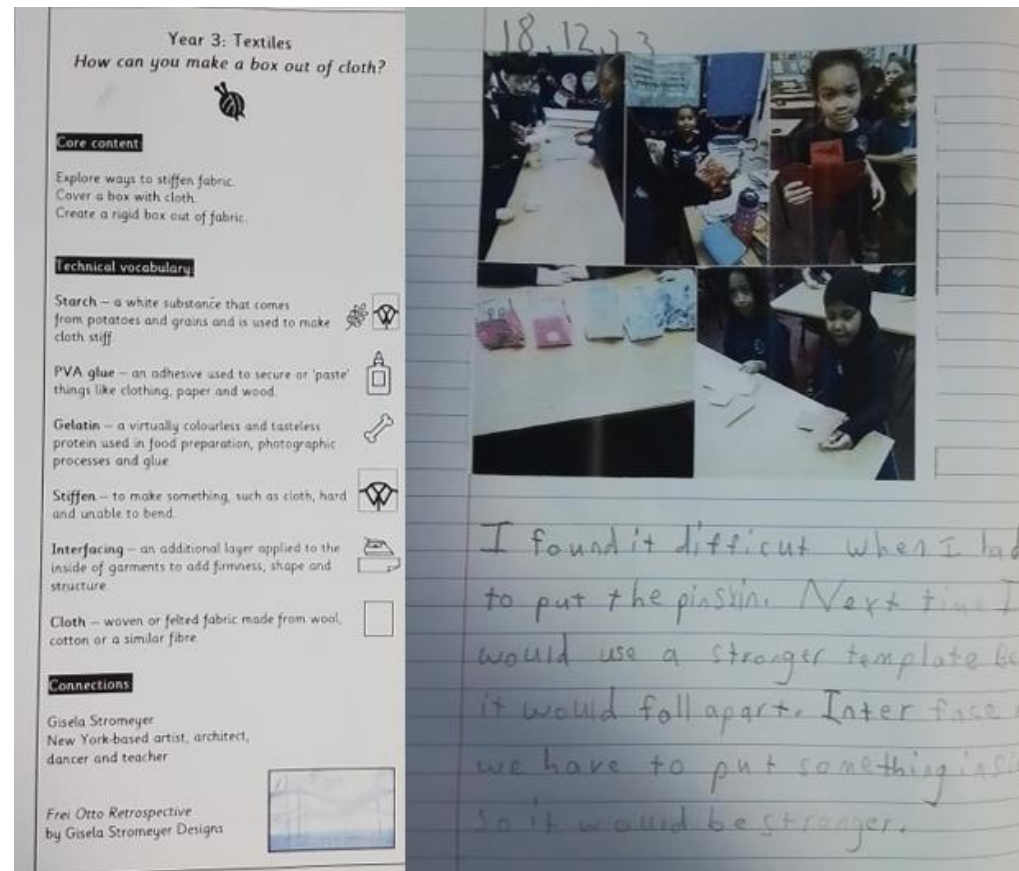 Year 3: Textiles
How can you make a box out of cloth?
Core content:
Explore ways to stiffen fabric.
Cover a box with cloth.
Create a rigid box out of fabric.
Technical vocabulary:
Starch – a white substance that comes
from potatoes and grains and is used to make
cloth stiff.
PVA glue – an adhesive used to secure or 'paste'
things like clothing, paper and wood.
Gelatin – a virtually colourless and tasteless
protein used in food preparation, photographic
processes and glue.
Stiffen – to make something, such as cloth, hard
and unable to bend.
Interfacing – an additional layer applied to the
inside of garments to add firmness, shape and
structure.
Cloth – woven or felted fabric made from wool,
cotton or a similar fibre.
Connections:
Gisela Stromeyer
New York-based artist, architect,
dancer and teacher
Frei Otto Retrospective
by Gisela Stromeyer Designs
18.12.23
I found it difficut when I had
to put the pinskin. Next time I
would use a stronger template
it would fall apart. Inter face
we have to put something
so it would be stranger.